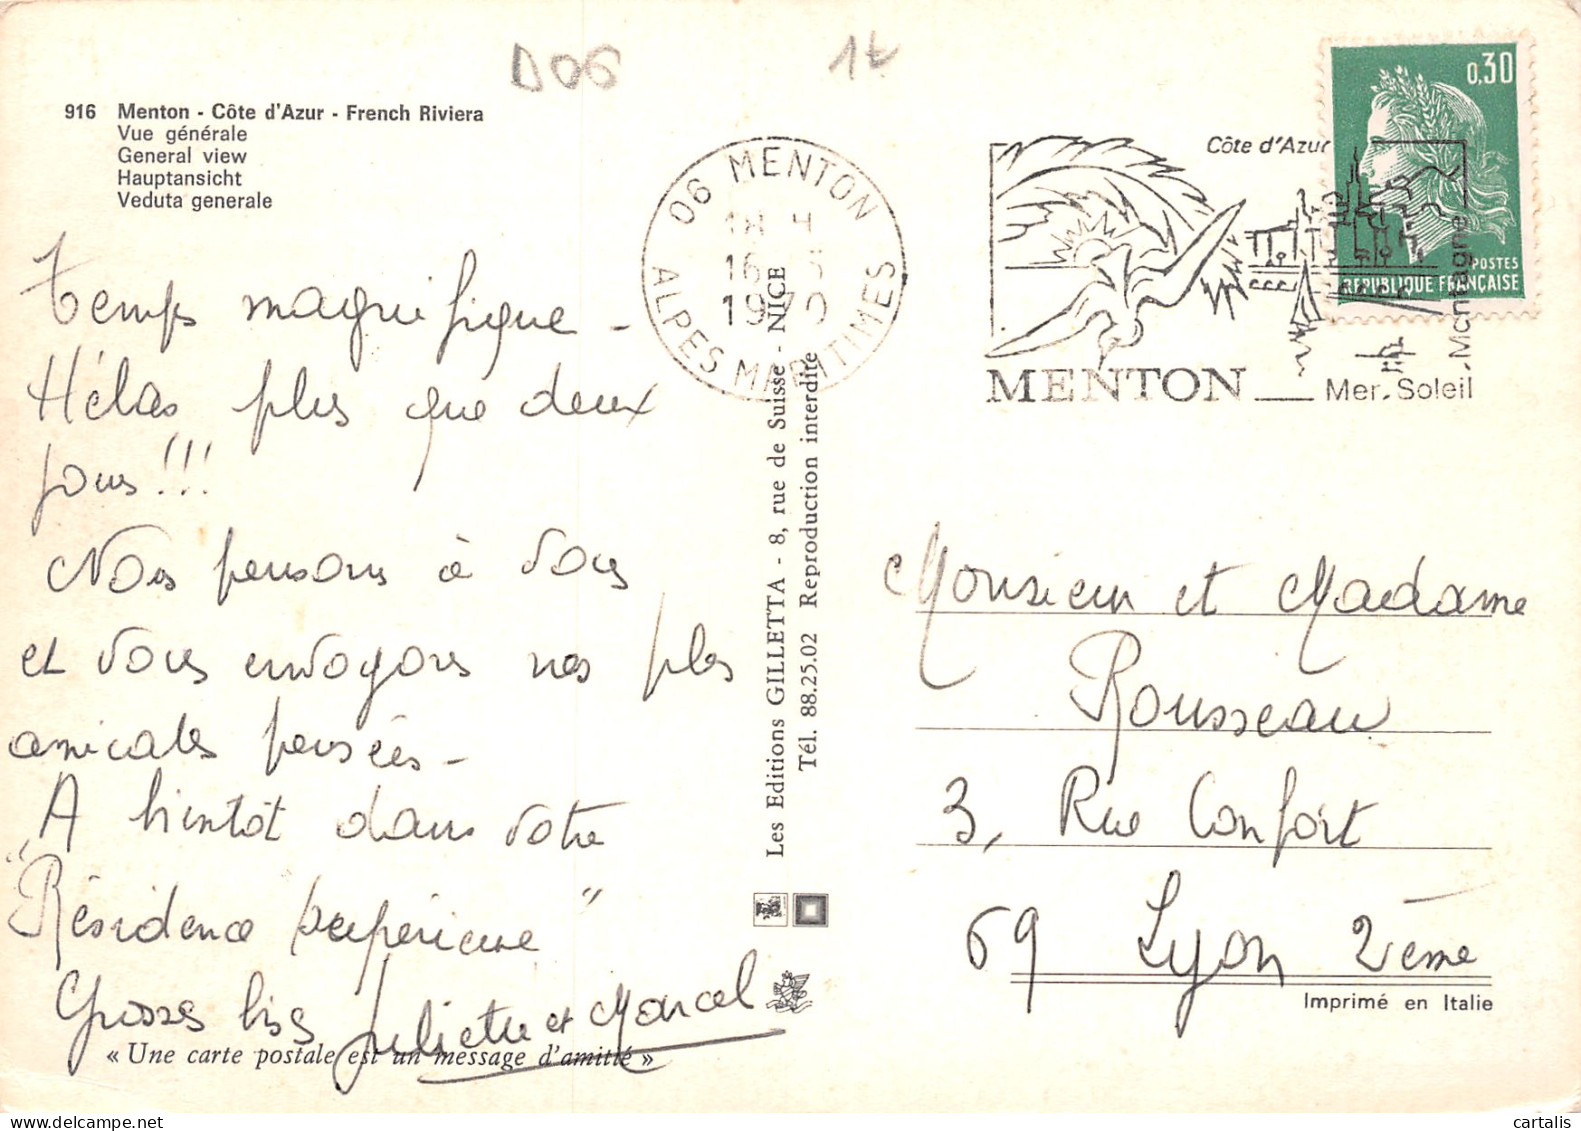 D06
1t
916 Menton - Côte d'Azur - French Riviera
Vue générale
General view
Hauptansicht
Veduta generale
06 MENTON
18 H
16
1970
ALPES MARITIMES
Côte d'Azur
MENTON
Mer. Soleil
. Montagne
0,30
POSTES
REPUBLIQUE FRANÇAISE
temps magnifique -
Hélas plus que deux
jours !!!
Nous pensons à vous
et vous envoyons nos plus
amicales pensées -
A bientôt dans votre
"Résidence supérieure"
Grosses bises Juliette et Marcel
« Une carte postale est un message d'amitié »
Les Editions GILLETTA - 8, rue de Suisse - NICE
Tél. 88.25.02 Reproduction interdite
Monsieur et Madame
Rousseau
3, Rue Confort
69 Lyon 2ème
Imprimé en Italie
cartalis